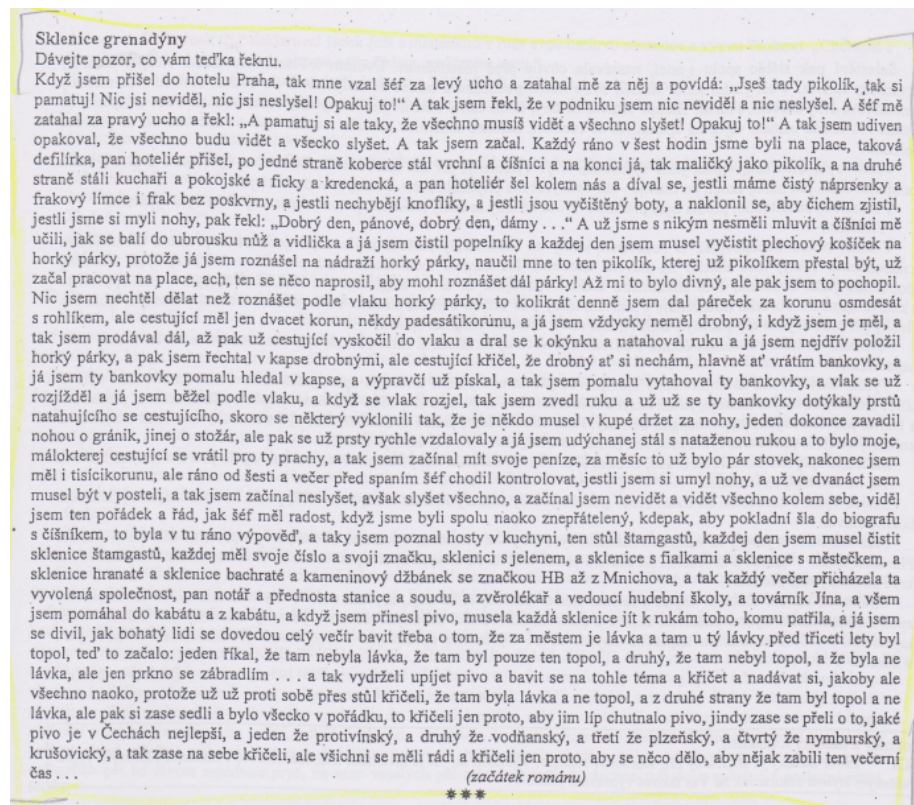 Sklenice grenadýny
Dávejte pozor, co vám teďka řeknu.
Když jsem přišel do hotelu Praha, tak mne vzal šéf za levý ucho a zatahal mě za něj a povídá: „Jseš tady pikolík, tak si
pamatuj! Nic jsi neviděl, nic jsi neslyšel! Opakuj to!“ A tak jsem řekl, že v podniku jsem nic neviděl a nic neslyšel. A šéf mě
zatahal za pravý ucho a řekl: „A pamatuj si ale taky, že všechno musíš vidět a všechno slyšet! Opakuj to!“ A tak jsem udiven
opakoval, že všechno budu vidět a všecko slyšet. A tak jsem začal. Každý ráno v šest hodin jsme byli na place, taková
defilírka, pan hoteliér přišel, po jedné straně koberce stál vrchní a číšníci a na konci já, tak maličký jako pikolík, a na druhé
straně stáli kuchaři a pokojské a ficky a kredencká, a pan hoteliér šel kolem nás a díval se, jestli máme čistý náprsenky a
frakový límce i frak bez poskvrny, a jestli nechybějí knoflíky, a jestli jsou vyčištěný boty, a naklonil se, aby čichem zjistil,
jestli jsme si myli nohy, pak řekl: „Dobrý den, pánové, dobrý den, dámy . . .“ A už jsme s nikým nesměli mluvit a číšníci mě
učili, jak se balí do ubrousku nůž a vidlička a já jsem čistil popelníky a každej den jsem musel vyčistit plechový košíček na
horký párky, protože já jsem roznášel na nádraží horký párky, naučil mne to ten pikolík, kterej už pikolíkem přestal být, už
začal pracovat na place, ach, ten se něco naprosil, aby mohl roznášet dál párky! Až mi to bylo divný, ale pak jsem to pochopil.
Nic jsem nechtěl dělat než roznášet podle vlaku horký párky, to kolikrát denně jsem dal páreček za korunu osmdesát
s rohlíkem, ale cestující měl jen dvacet korun, někdy padesátikorunu, a já jsem vždycky neměl drobný, i když jsem je měl, a
tak jsem prodával dál, až pak už cestující vyskočil do vlaku a dral se k okýnku a natahoval ruku a já jsem nejdřív položil
horký párky, a pak jsem řechtal v kapse drobnými, ale cestující křičel, že drobný ať si nechám, hlavně ať vrátím bankovky, a
já jsem ty bankovky pomalu hledal v kapse, a výpravčí už pískal, a tak jsem pomalu vytahoval ty bankovky, a vlak se už
rozjížděl a já jsem běžel podle vlaku, a když se vlak rozjel, tak jsem zvedl ruku a už už se ty bankovky dotýkaly prstů
natahujícího se cestujícího, skoro se některý vyklonili tak, že je někdo musel v kupé držet za nohy, jeden dokonce zavadil
nohou o gránik, jinej o stožár, ale pak se už prsty rychle vzdalovaly a já jsem udýchanej stál s nataženou rukou a to bylo moje,
málokterej cestující se vrátil pro ty prachy, a tak jsem začínal mít svoje peníze, za měsíc to už bylo pár stovek, nakonec jsem
měl i tisícikorunu, ale ráno od šesti a večer před spaním šéf chodil kontrolovat, jestli jsem si umyl nohy, a už ve dvanáct jsem
musel být v posteli, a tak jsem začínal neslyšet, avšak slyšet všechno, a začínal jsem nevidět a vidět všechno kolem sebe, viděl
jsem ten pořádek a řád, jak šéf měl radost, když jsme byli spolu naoko znepřátelený, kdepak, aby pokladní šla do biografu
s číšníkem, to byla v tu ráno výpověď, a taky jsem poznal hosty v kuchyni, ten stůl štamgastů, každej den jsem musel čistit
sklenice štamgastů, každej měl svoje číslo a svoji značku, sklenici s jelenem, a sklenice s fialkami a sklenice s městečkem, a
sklenice hranaté a sklenice bachraté a kameninový džbánek se značkou HB až z Mnichova, a tak každý večer přicházela ta
vyvolená společnost, pan notář a přednosta stanice a soudu, a zvěrolékař a vedoucí hudební školy, a továrník Jína, a všem
jsem pomáhal do kabátu a z kabátu, a když jsem přinesl pivo, musela každá sklenice jít k rukám toho, komu patřila, a já jsem
se divil, jak bohatý lidi se dovedou celý večír bavit třeba o tom, že za městem je lávka a tam u tý lávky před třiceti lety byl
topol, teď to začalo: jeden říkal, že tam nebyla lávka, že tam byl pouze ten topol, a druhý, že tam nebyl topol, a že byla ne
lávka, ale jen prkno se zábradlím . . . a tak vydrželi upíjet pivo a bavit se na tohle téma a křičet a nadávat si, jakoby ale
všechno naoko, protože už už proti sobě přes stůl křičeli, že tam byla lávka a ne topol, a z druhé strany že tam byl topol a ne
lávka, ale pak si zase sedli a bylo všecko v pořádku, to křičeli jen proto, aby jim líp chutnalo pivo, jindy zase se přeli o to, jaké
pivo je v Čechách nejlepší, a jeden že protivínský, a druhý že vodňanský, a třetí že plzeňský, a čtvrtý že nymburský, a
krušovický, a tak zase na sebe křičeli, ale všichni se měli rádi a křičeli jen proto, aby se něco dělo, aby nějak zabili ten večerní
čas . . . (začátek románu)
✱✱✱